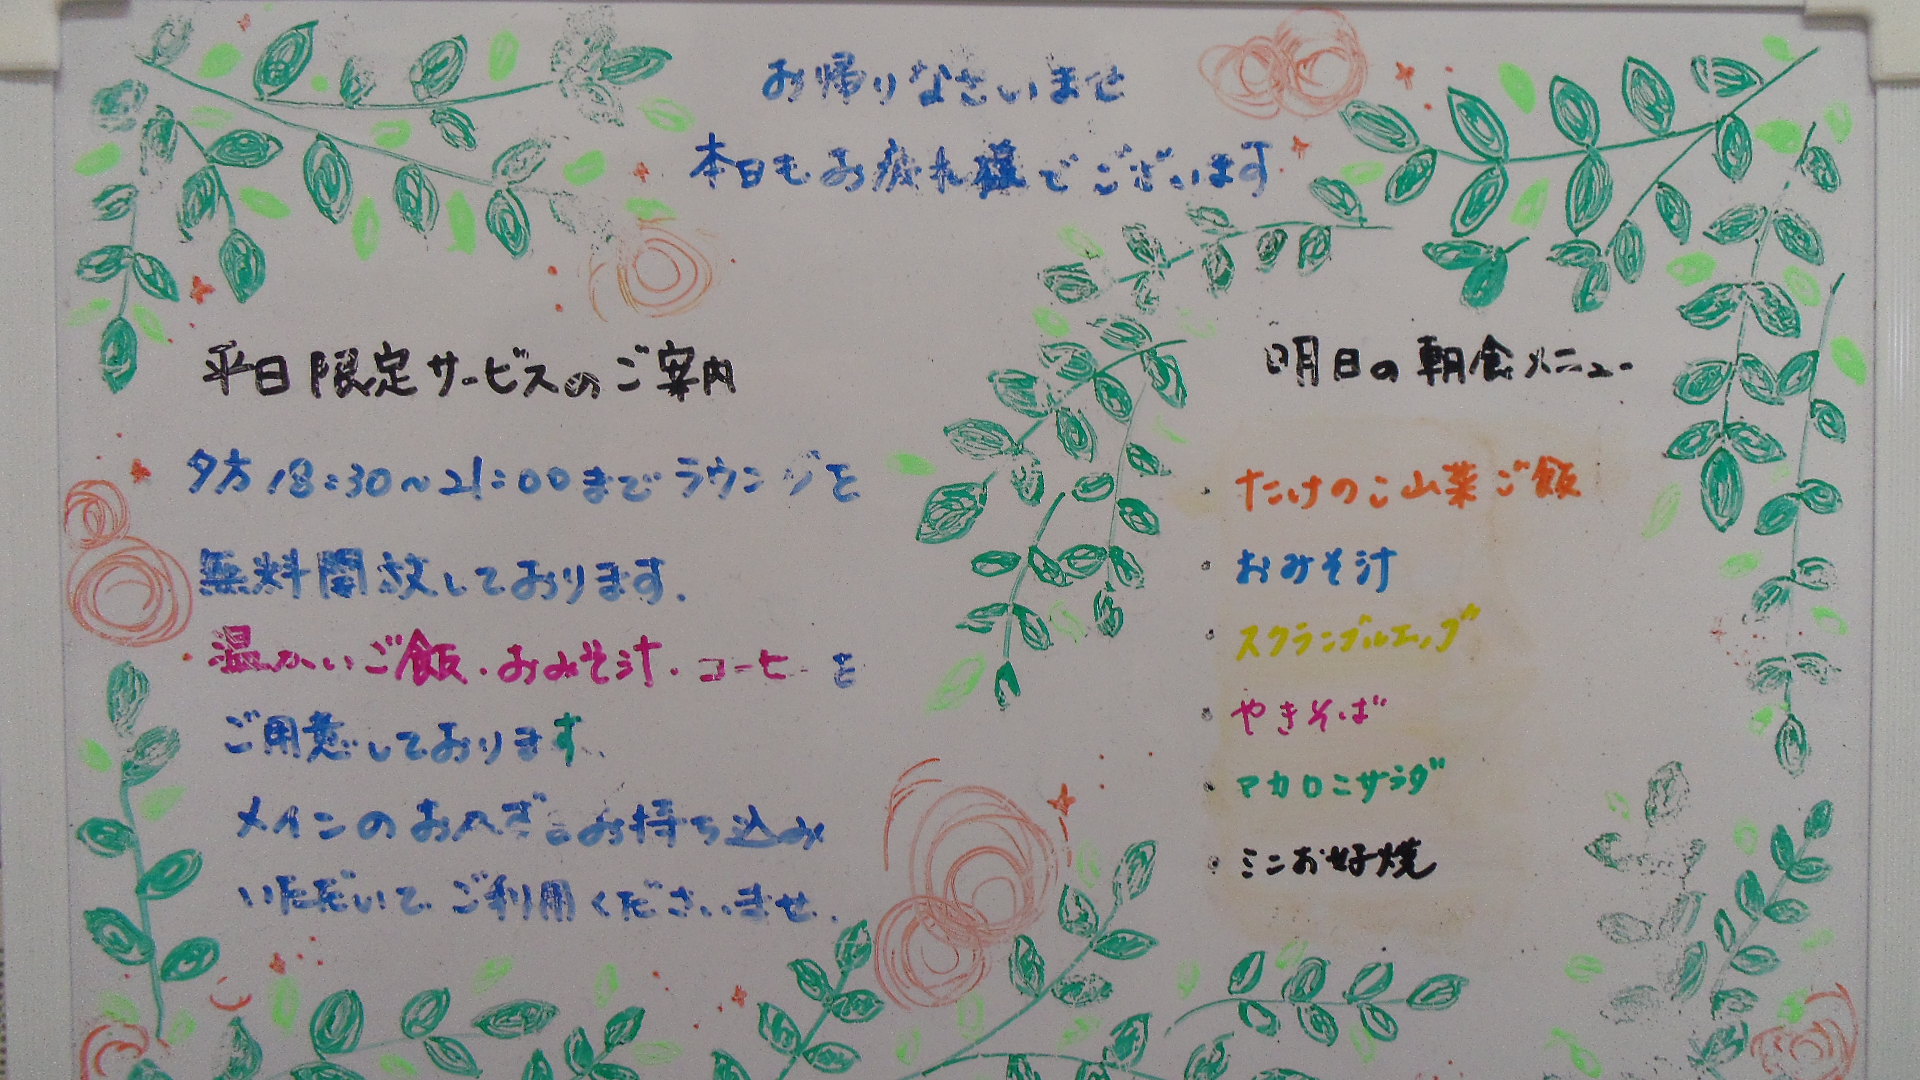 お帰りなさいませ
本日もお疲れ様でございます
平日限定サービスのご案内
夕方18:30～21:00までラウンジを
無料開放しております.
温かいご飯・おみそ汁・コーヒーを
ご用意しております.
メインのおかずはお持ち込み
いただいてご利用くださいませ.
明日の朝食メニュー
・たけのこ山菜ご飯
・おみそ汁
・スクランブルエッグ
・やきそば
・マカロニサラダ
・ミニお好焼